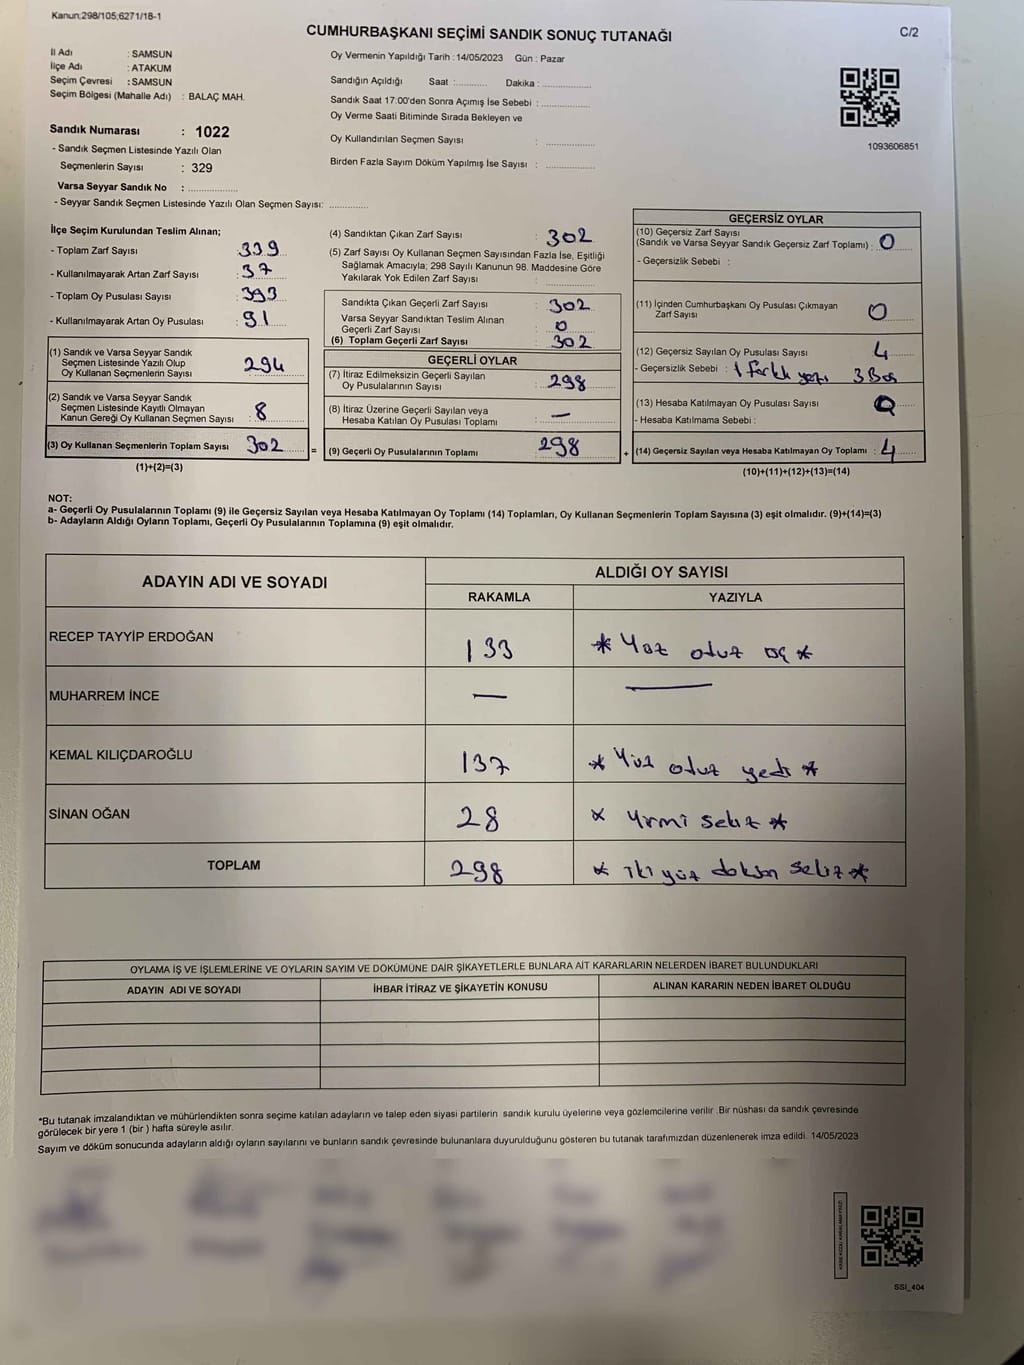 Kanun;298/105;6271/18-1
CUMHURBAŞKANI SEÇİMİ SANDIK SONUÇ TUTANAĞI
C/2
İl Adı : SAMSUN
İlçe Adı : ATAKUM
Seçim Çevresi : SAMSUN
Seçim Bölgesi (Mahalle Adı) : BALAÇ MAH.
Sandık Numarası : 1022
- Sandık Seçmen Listesinde Yazılı Olan
Seçmenlerin Sayısı : 329
Varsa Seyyar Sandık No : ................
- Seyyar Sandık Seçmen Listesinde Yazılı Olan Seçmen Sayısı: .............
Oy Vermenin Yapıldığı Tarih : 14/05/2023 Gün : Pazar
Sandığın Açıldığı Saat :........... Dakika :................
Sandık Saat 17.00'den Sonra Açımış İse Sebebi : ................
Oy Verme Saati Bitiminde Sırada Bekleyen ve
Oy Kullandırılan Seçmen Sayısı : ................
Birden Fazla Sayım Döküm Yapılmış İse Sayısı : ................
1093606851
İlçe Seçim Kurulundan Teslim Alınan;
- Toplam Zarf Sayısı : 339
- Kullanılmayarak Artan Zarf Sayısı : 37
- Toplam Oy Pusulası Sayısı : 393
- Kullanılmayarak Artan Oy Pusulası : 91
(1) Sandık ve Varsa Seyyar Sandık
Seçmen Listesinde Yazılı Olup
Oy Kullanan Seçmenlerin Sayısı 294
(2) Sandık ve Varsa Seyyar Sandık
Seçmen Listesinde Kayıtlı Olmayan
Kanun Gereği Oy Kullanan Seçmen Sayısı : 8
(3) Oy Kullanan Seçmenlerin Toplam Sayısı 302 =
(1)+(2)=(3)
(4) Sandıktan Çıkan Zarf Sayısı : 302
(5) Zarf Sayısı Oy Kullanan Seçmen Sayısından Fazla İse, Eşitliği
Sağlamak Amacıyla; 298 Sayılı Kanunun 98. Maddesine Göre
Yakılarak Yok Edilen Zarf Sayısı : ................
Sandıkta Çıkan Geçerli Zarf Sayısı : 302
Varsa Seyyar Sandıktan Teslim Alınan
Geçerli Zarf Sayısı : 0
(6) Toplam Geçerli Zarf Sayısı : 302
GEÇERLİ OYLAR
(7) İtiraz Edilmeksizin Geçerli Sayılan
Oy Pusulalarının Sayısı : 298
(8) İtiraz Üzerine Geçerli Sayılan veya
Hesaba Katılan Oy Pusulası Toplamı : —
(9) Geçerli Oy Pusulalarının Toplamı : 298 +
GEÇERSİZ OYLAR
(10) Geçersiz Zarf Sayısı
(Sandık ve Varsa Seyyar Sandık Geçersiz Zarf Toplamı) : 0
- Geçersizlik Sebebi :
(11) İçinden Cumhurbaşkanı Oy Pusulası Çıkmayan
Zarf Sayısı : 0
(12) Geçersiz Sayılan Oy Pusulası Sayısı : 4
- Geçersizlik Sebebi : 1 farklı yazı 3 Boş
(13) Hesaba Katılmayan Oy Pusulası Sayısı : 0
- Hesaba Katılmama Sebebi :
(14) Geçersiz Sayılan veya Hesaba Katılmayan Oy Toplamı : 4
(10)+(11)+(12)+(13)=(14)
NOT:
a- Geçerli Oy Pusulalarının Toplamı (9) ile Geçersiz Sayılan veya Hesaba Katılmayan Oy Toplamı (14) Toplamları, Oy Kullanan Seçmenlerin Toplam Sayısına (3) eşit olmalıdır. (9)+(14)=(3)
b- Adayların Aldığı Oyların Toplamı, Geçerli Oy Pusulalarının Toplamına (9) eşit olmalıdır.
ADAYIN ADI VE SOYADI ALDIĞI OY SAYISI
RAKAMLA YAZIYLA
RECEP TAYYİP ERDOĞAN 133 * Yüz otuz üç *
MUHARREM İNCE — —
KEMAL KILIÇDAROĞLU 137 * Yüz otuz yedi *
SİNAN OĞAN 28 * Yirmi sekiz *
TOPLAM 298 * iki yüz doksan sekiz *
OYLAMA İŞ VE İŞLEMLERİNE VE OYLARIN SAYIM VE DÖKÜMÜNE DAİR ŞİKAYETLERLE BUNLARA AİT KARARLARIN NELERDEN İBARET BULUNDUKLARI
ADAYIN ADI VE SOYADI İHBAR İTİRAZ VE ŞİKAYETİN KONUSU ALINAN KARARIN NEDEN İBARET OLDUĞU
*Bu tutanak imzalandıktan ve mühürlendikten sonra seçime katılan adayların ve talep eden siyasi partilerin sandık kurulu üyelerine veya gözlemcilerine verilir .Bir nüshası da sandık çevresinde
görülecek bir yere 1 (bir ) hafta süreyle asılır.
Sayım ve döküm sonucunda adayların aldığı oyların sayılarını ve bunların sandık çevresinde bulunanlara duyurulduğunu gösteren bu tutanak tarafımızdan düzenlenerek imza edildi. 14/05/2023
SSI_404